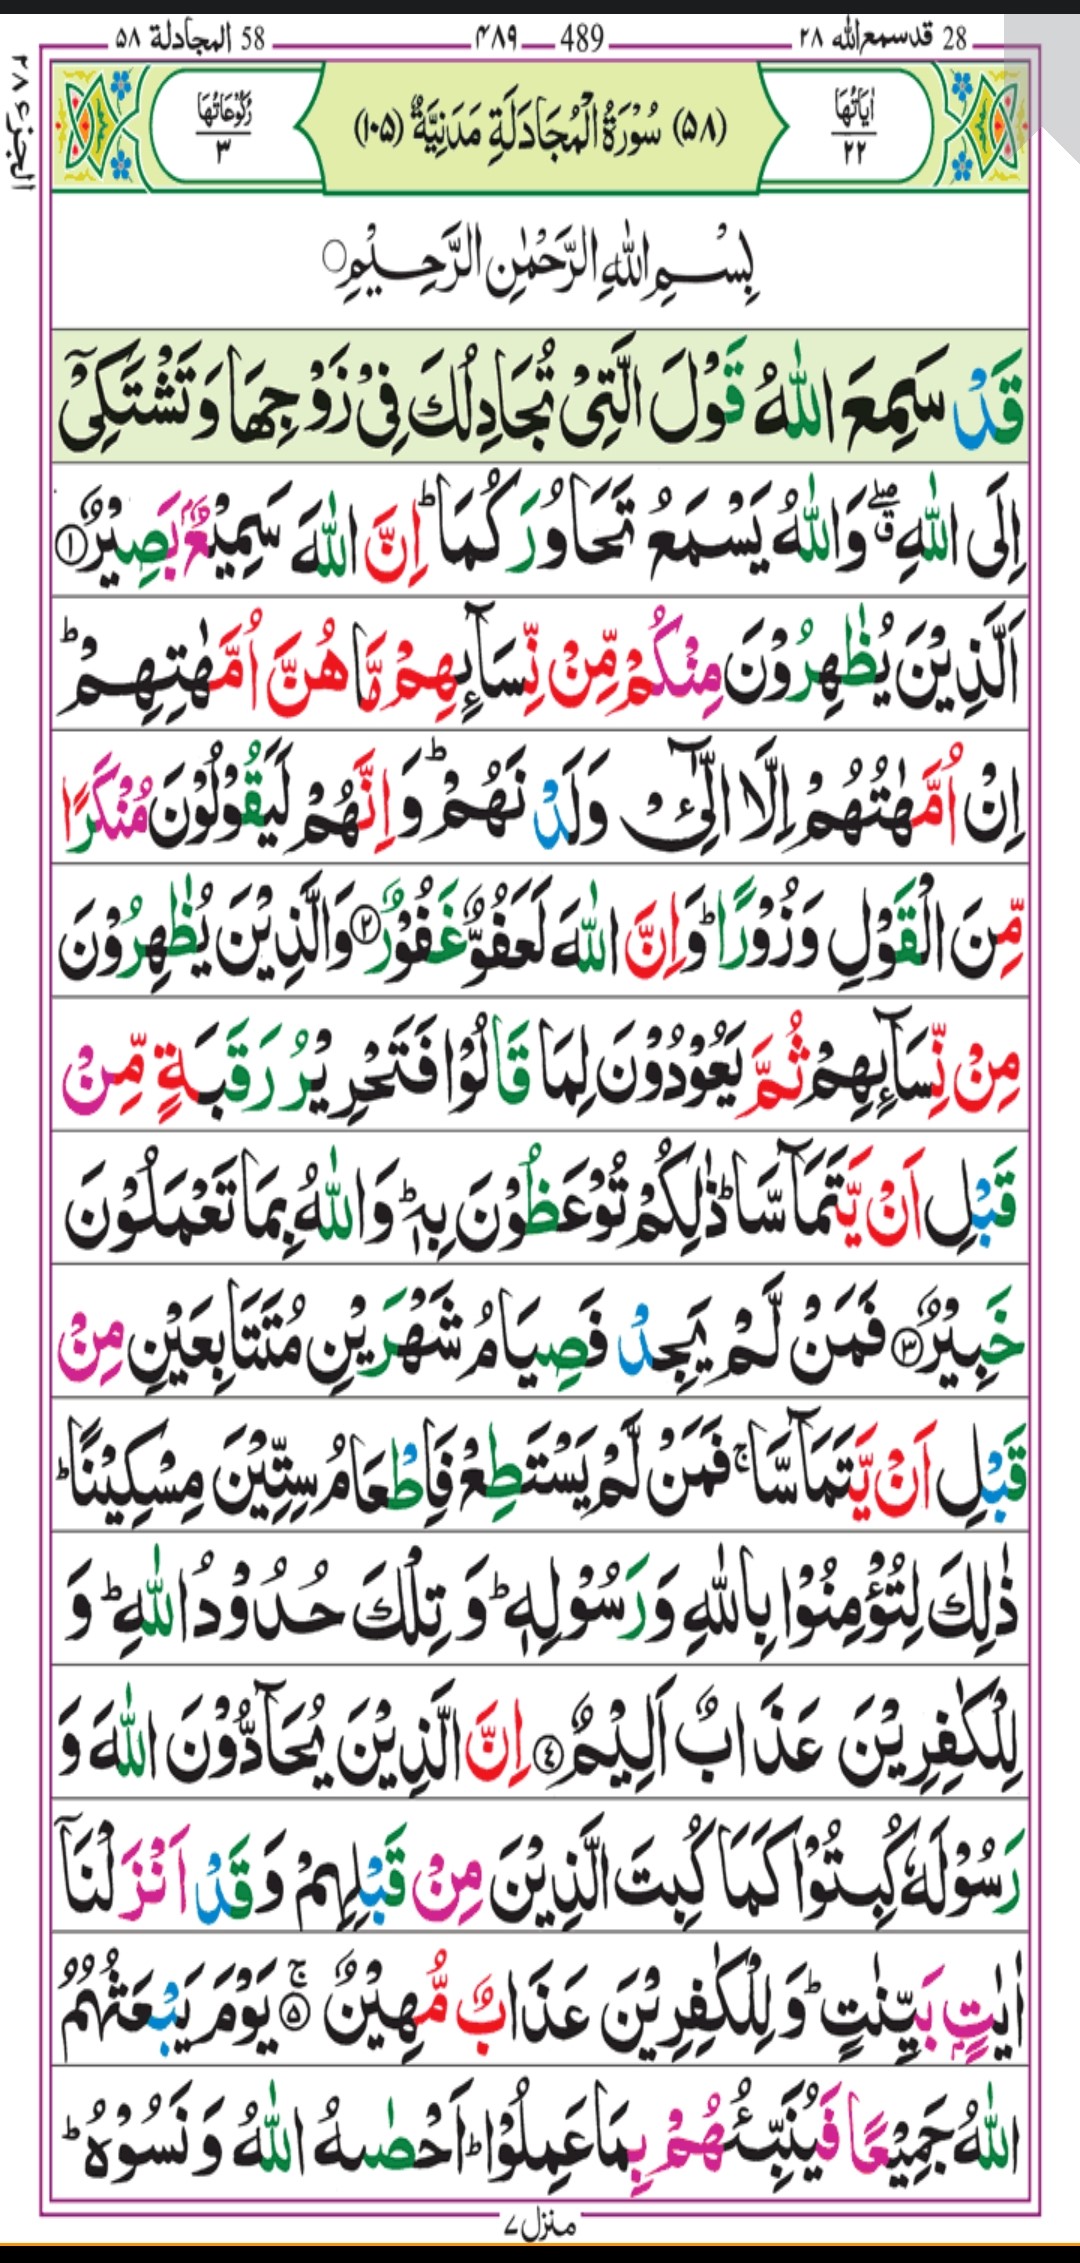 58 المجادلة ۵۸
489 ۴۸۹
28 قدسمع الله ۲۸
الجزء ۲۸
اٰيَاتُهَا ۲۲
(۵۸) سُوْرَةُ الْمُجَادَلَةِ مَدَنِيَّةٌ (۱۰۵)
رُكُوْعَاتُهَا ۳
بِسْمِ اللّٰهِ الرَّحْمٰنِ الرَّحِيْمِ○
قَدْ سَمِعَ اللّٰهُ قَوْلَ الَّتِيْ تُجَادِلُكَ فِيْ زَوْجِهَا وَتَشْتَكِيْٓ
اِلَى اللّٰهِ ۖق وَاللّٰهُ يَسْمَعُ تَحَاوُرَكُمَا ؕ اِنَّ اللّٰهَ سَمِيْعٌۢ بَصِيْرٌ ۱
اَلَّذِيْنَ يُظٰهِرُوْنَ مِنْكُمْ مِّنْ نِّسَآىِٕهِمْ مَّا هُنَّ اُمَّهٰتِهِمْ ؕ
اِنْ اُمَّهٰتُهُمْ اِلَّا الّٰٓـِٔيْ وَلَدْنَهُمْ ؕ وَاِنَّهُمْ لَيَقُوْلُوْنَ مُنْكَرًا
مِّنَ الْقَوْلِ وَزُوْرًا ؕ وَاِنَّ اللّٰهَ لَعَفُوٌّ غَفُوْرٌ ۲ وَالَّذِيْنَ يُظٰهِرُوْنَ
مِنْ نِّسَآىِٕهِمْ ثُمَّ يَعُوْدُوْنَ لِمَا قَالُوْا فَتَحْرِيْرُ رَقَبَةٍ مِّنْ
قَبْلِ اَنْ يَّتَمَآسَّا ؕ ذٰلِكُمْ تُوْعَظُوْنَ بِهٖ ؕ وَاللّٰهُ بِمَا تَعْمَلُوْنَ
خَبِيْرٌ ۳ فَمَنْ لَّمْ يَجِدْ فَصِيَامُ شَهْرَيْنِ مُتَتَابِعَيْنِ مِنْ
قَبْلِ اَنْ يَّتَمَآسَّا ۚ فَمَنْ لَّمْ يَسْتَطِعْ فَاِطْعَامُ سِتِّيْنَ مِسْكِيْنًا ؕ
ذٰلِكَ لِتُؤْمِنُوْا بِاللّٰهِ وَرَسُوْلِهٖ ؕ وَتِلْكَ حُدُوْدُ اللّٰهِ ؕ وَ
لِلْكٰفِرِيْنَ عَذَابٌ اَلِيْمٌ ٤ اِنَّ الَّذِيْنَ يُحَآدُّوْنَ اللّٰهَ وَ
رَسُوْلَهٗ كُبِتُوْا كَمَا كُبِتَ الَّذِيْنَ مِنْ قَبْلِهِمْ وَقَدْ اَنْزَلْنَآ
اٰيٰتٍۭ بَيِّنٰتٍ ؕ وَلِلْكٰفِرِيْنَ عَذَابٌ مُّهِيْنٌ ۚ ۵ يَوْمَ يَبْعَثُهُمُ
اللّٰهُ جَمِيْعًا فَيُنَبِّئُهُمْ بِمَا عَمِلُوْا ؕ اَحْصٰىهُ اللّٰهُ وَنَسُوْهُ ؕ
منزل ۷